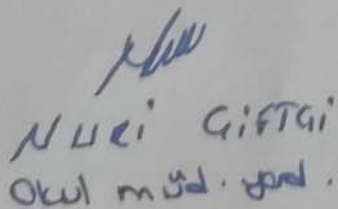 NURi ÇiFTÇi
Okul müd. yard.